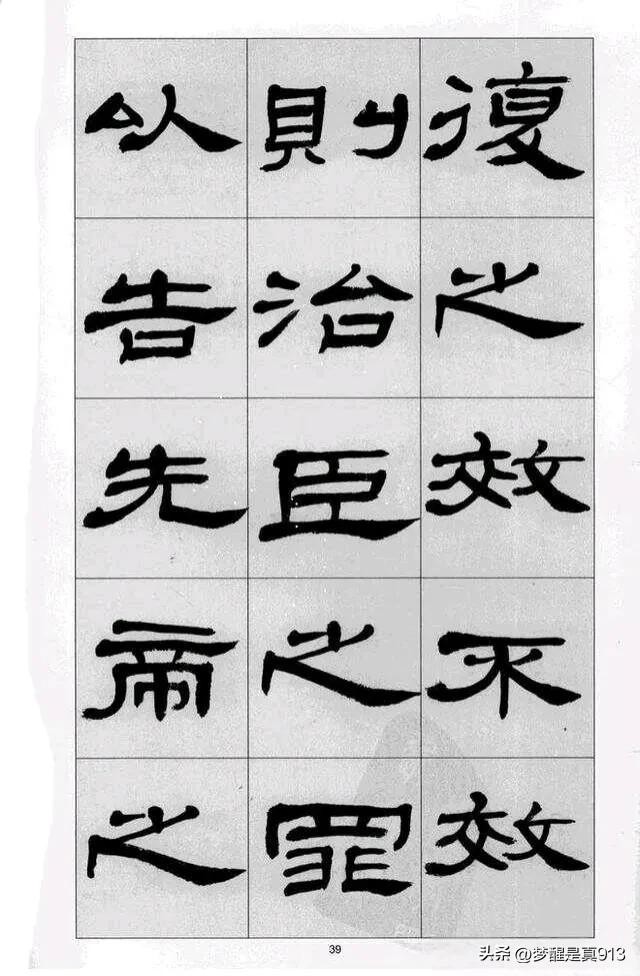 復之效不效
則治臣之罪
以告先帝之
39
头条 @梦醒是真913